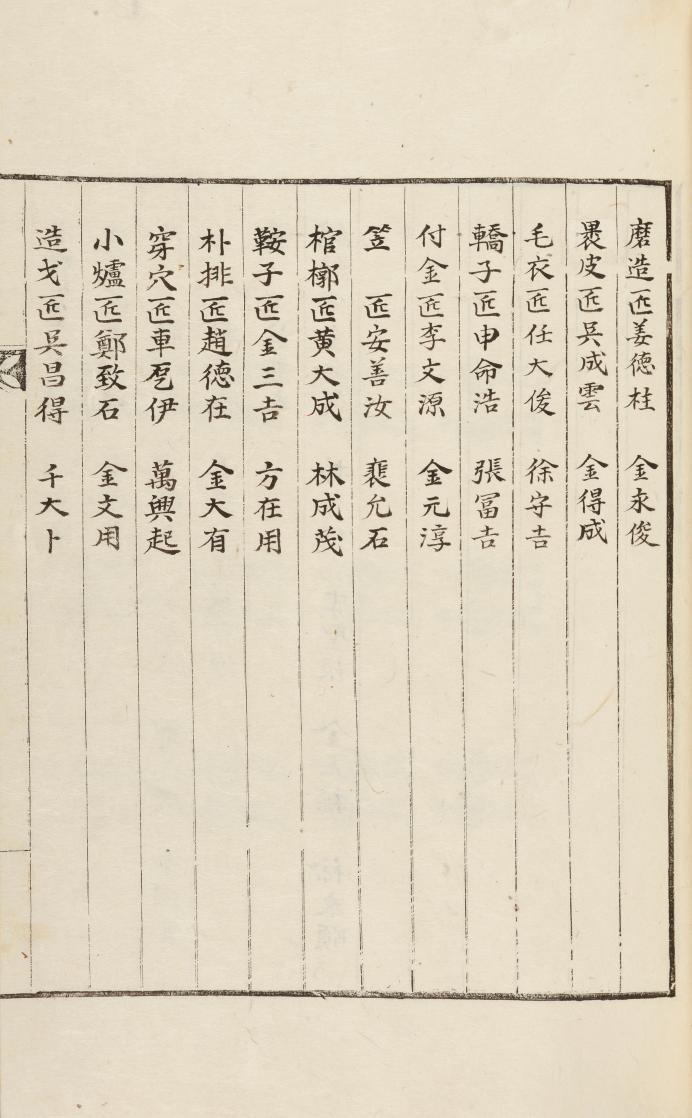 磨造匠姜德桂 金永俊
褁皮匠吳成雲 金得成
毛衣匠任大俊 徐守吉
轎子匠申命浩 張冨吉
付金匠李文源 金元淳
笠 匠安善汝 裵允石
棺槨匠黄大成 林成茂
鞍子匠金三吉 方在用
朴排匠趙德在 金大有
穿穴匠車㐗伊 萬興起
小爐匠鄭致石 金文用
造戈匠吳昌得 千大卜